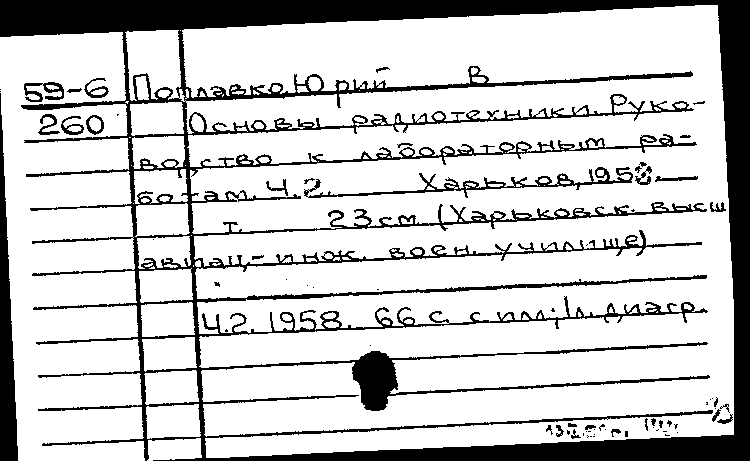 59-6 Поплавко, Юрий В
260 Основы радиотехники. Руко-
водство к лабораторным ра-
ботам. Ч.2. Харьков, 1958.
т. 23 см (Харьковск. высш
авиац.-инж. воен. училище)
Ч.2. 1958. 66 с. с илл.; 1 л. диагр.